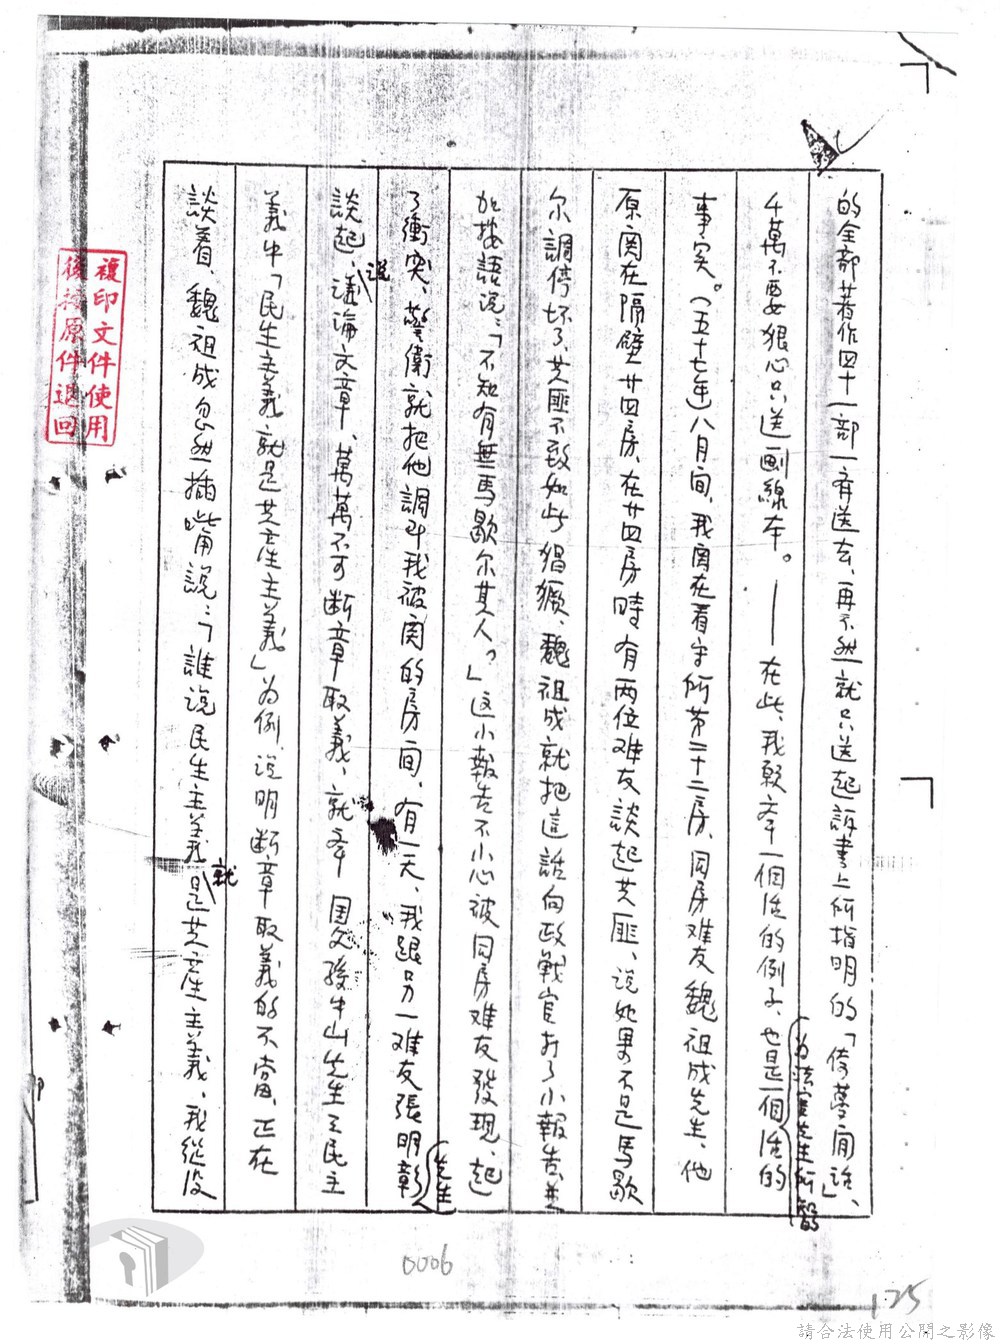 的全部著作四十一部一齊送去、再不然就只送起訴書上所指明的「倚夢閒話」、
千萬不要狠心只送劃線本。——在此、我願奉一個活的例子、也是一個活的
為法官先生所智
事実。(五十七年)八月間、我関在看守所第二十二房、同房难友魏祖成先生、他
原関在隔壁廿四房、在廿四房時有两位难友談起共匪、说如果不是馬歇
尔調停坏了、共匪不致如此猖獗、魏祖成就把這話向政戰官打了小報告、並
加按語说:「不知有無馬歇尔其人?」这小報告不小心被同房难友發現、起
了衝突、警衛就把他調到我被関的房间、有一天、我跟另一难友張明彰
先生
談起、議論文章、萬萬不可断章取義、就奉 国父孫中山先生三民主
说
義中「民生主義就是共産主義。」为例、说明断章取義的不當、正在
談着、魏祖成忽然插嘴説:「誰说民生主義是共産主義、我從没
就
複印文件使用
後按原件退回
0006
175
請合法使用公開之影像